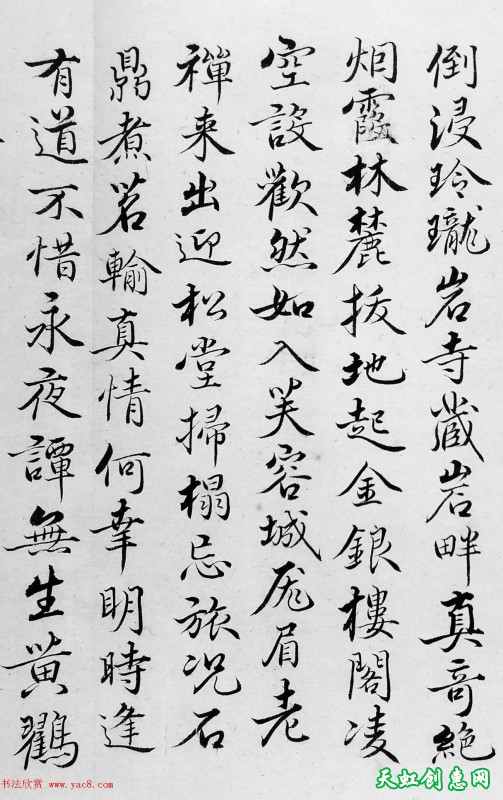 倒浸玲瓏岩寺藏岩畔真奇絶
烟霞林麓拔地起金銀樓閣凌
空設歡然如入芙容城厖眉老
禪来出迎松堂掃榻忘旅况石
鼎煮茗輸真情何幸明時逢
有道不惜永夜譚無生黄鸛
书法欣赏 www.yac8.com
天虹创惠网